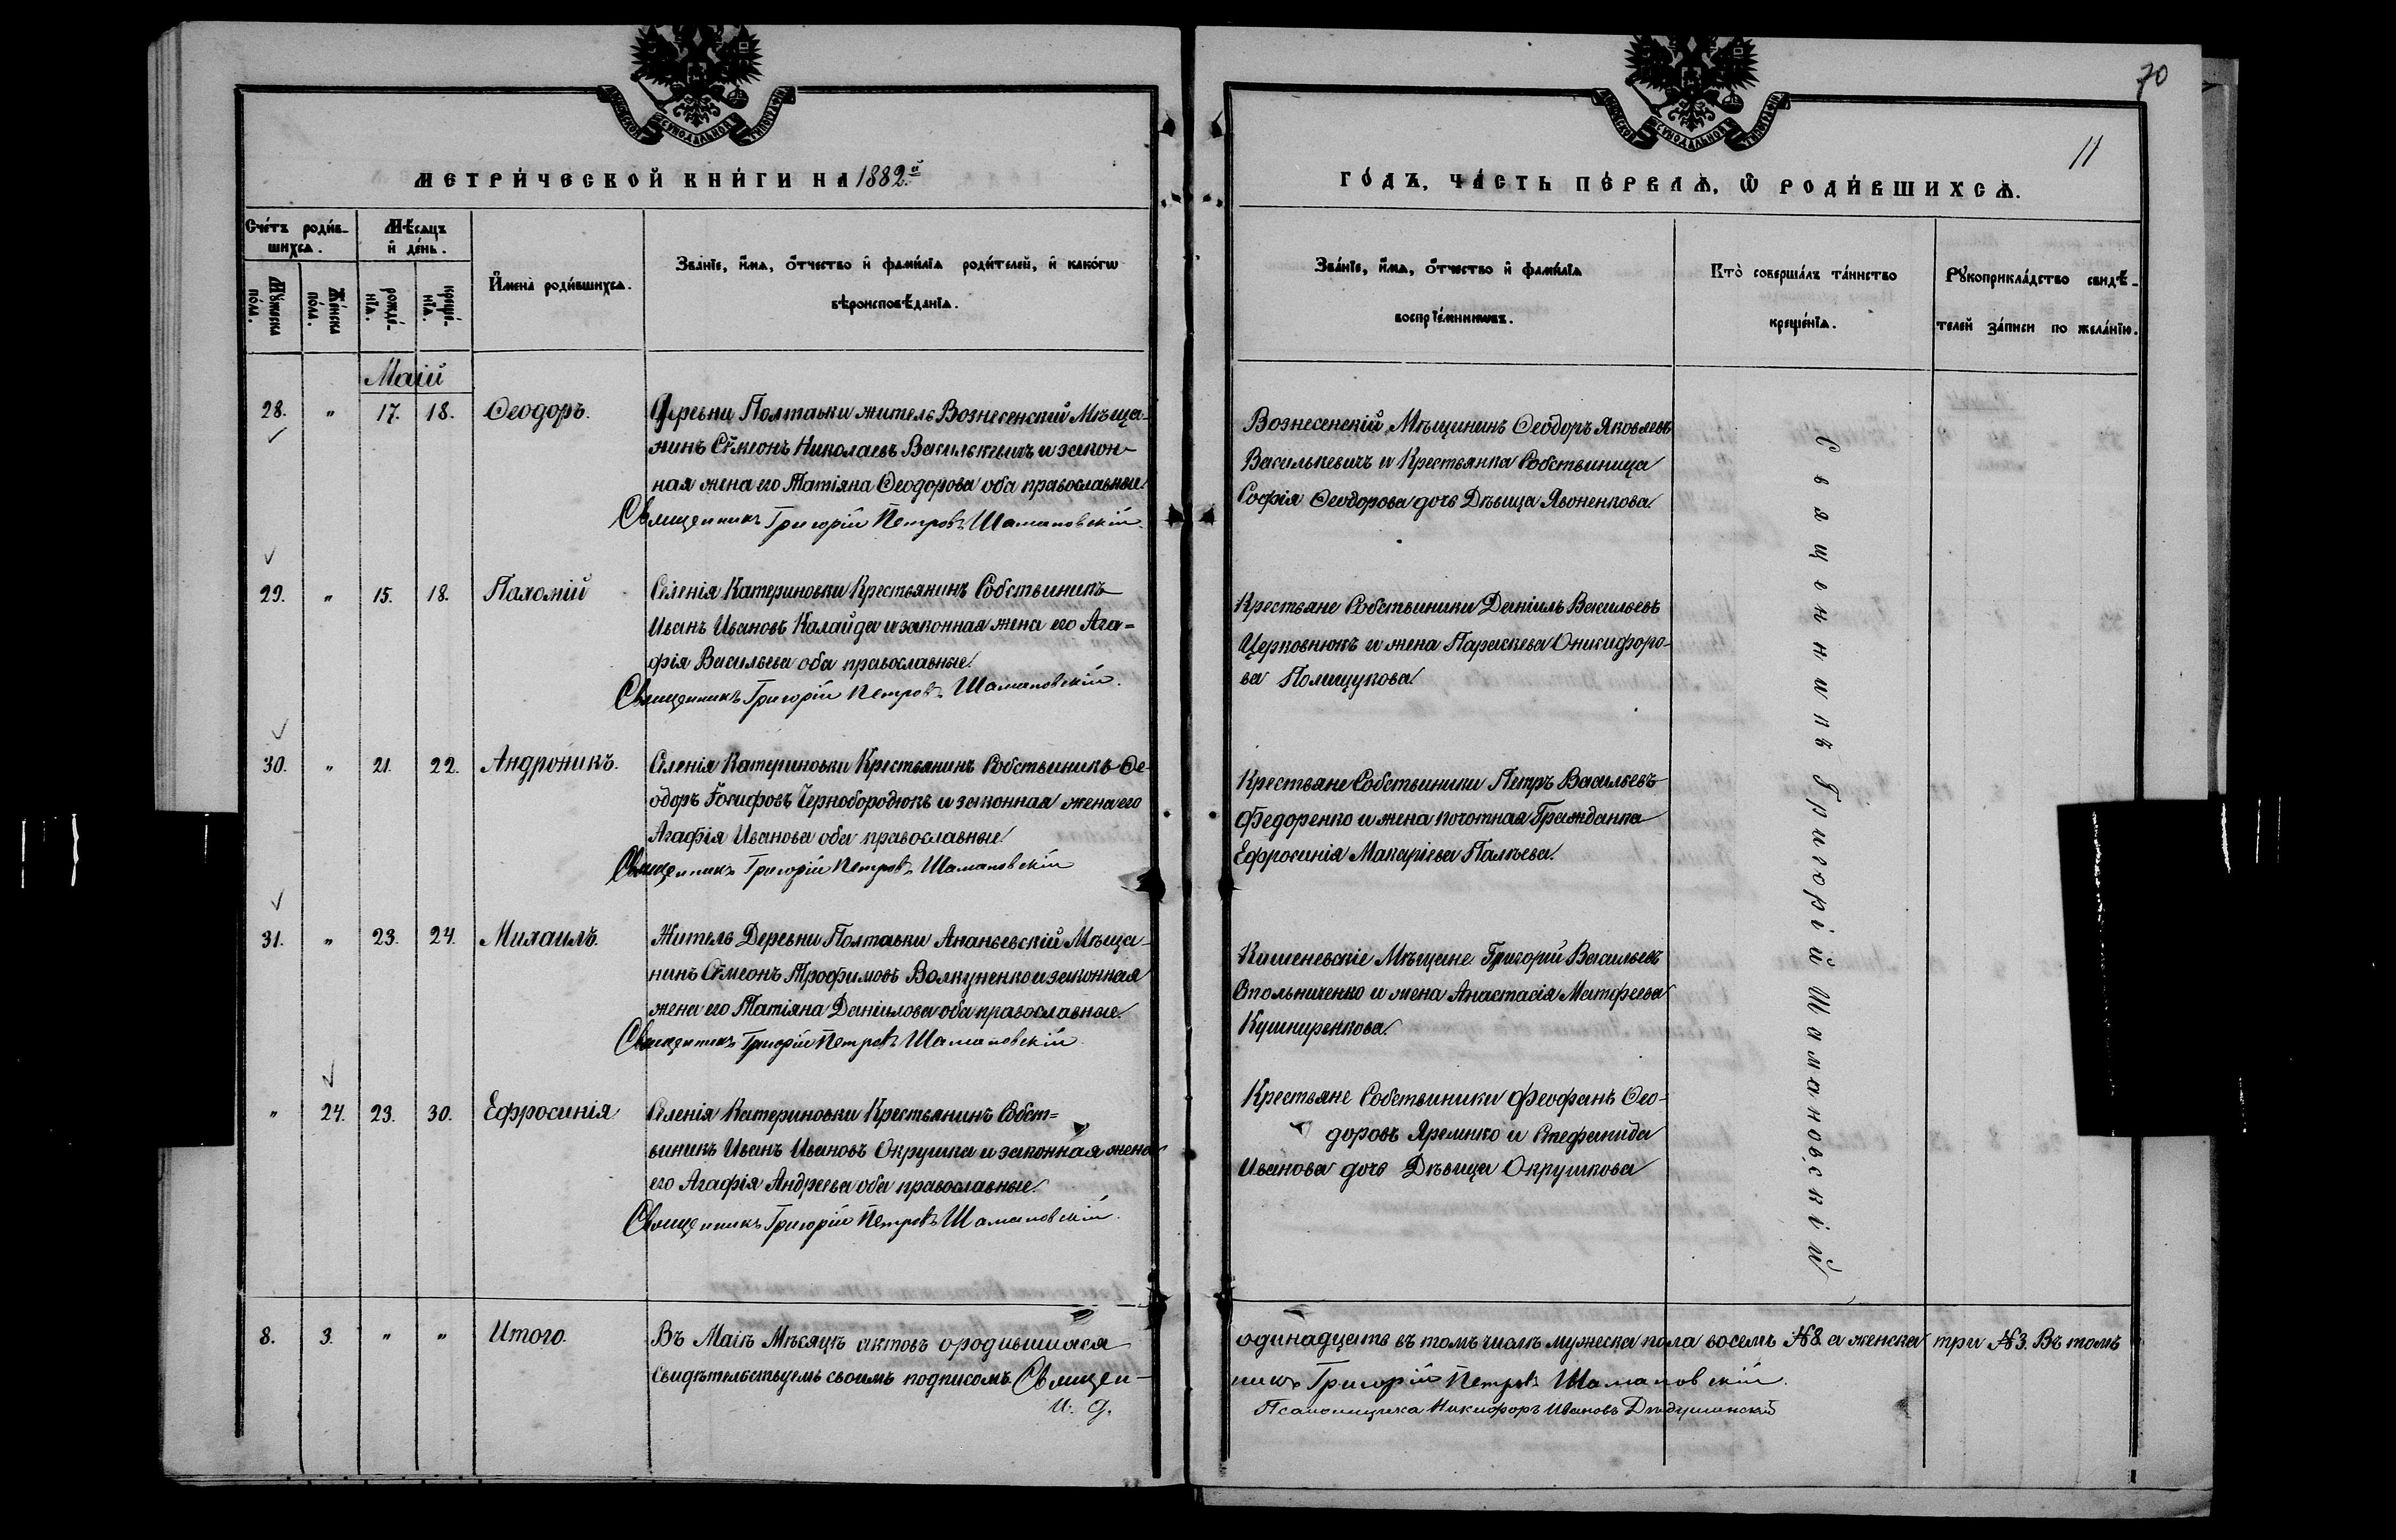 70
11
МЕТРИ́ЧЕСКОЙ КНИ́ГИ НА 1882.й
ГО́ДЪ, ЧА́СТЬ ПЕ́РВАѦ, Ѡ҆ РОДИ́ВШИХСѦ.
Сче́тъ роди́в-
шихсѧ.
Мѣ́сѧцъ
и҆ де́нь.
Мꙋ́жеска
по́ла.
Же́нска
по́ла.
рожде́-
нїѧ.
креще́-
нїѧ.
И҆мена̀ роди́вшихсѧ.
Зва́нїе, и҆́мѧ, ѻ҆́тчество и҆ фами́лїѧ роди́телей, и҆ како́гѡ
вѣроисповѣ́данїѧ.
Зва́нїе, и҆́мѧ, ѻ҆́тчество и҆ фами́лїѧ
воспрїе́мникѡвъ.
Кто̀ соверша́лъ та́инство
креще́нїѧ.
Рꙋкоприкла́дство свидѣ́-
телей за́писи по жела́нїю.
Маій
28. " 17. 18. Ѳеодоръ.
Деревни Полтавки житель Вознесенскій Мѣща-
нинъ Сѵмеонъ Николаевъ Василькевичъ и закон-
ная жена его Татіяна Ѳеодорова оба православные.
Священникъ Григорій Петровъ Шамановскій.
Вознесенскій Мѣщининъ Ѳеодоръ Яковлевъ
Василькевичъ и Крестьянка Собственица
Софія Ѳеодорова дочь Дѣвица Явоненкова.
29. " 15. 18. Пахомій
Селенія Катериновки Крестьянинъ Собственикъ
Иванъ Ивановъ Калайда и законная жена его Ага=
фія Васильева оба православные.
Священникъ Григорій Петровъ Шамановскій.
Крестьяне Собственики Даніилъ Васильевъ
Церковнюкъ и жена Параскева Оникифоро-
ва Полищукова.
30. " 21. 22. Андроникъ.
Селенія Катериновки Крестьянинъ Собственикъ Ѳе-
одоръ Іосифовъ Чернобородюкъ и законная жена его
Агафія Иванова оба православные.
Священникъ Григорій Петровъ Шамановскій
Крестьяне Собственики Петръ Васильевъ
Федоренко и жена почотная Гражданка
Ефросинія Макаріева Палѣева.
31. " 23. 24. Михаилъ.
Житель Деревни Полтавки Ананьевскій Мѣща-
нинъ Сѵмеонъ Трофимовъ Волкуненко и законная
жена его Татіяна Даніилова оба православные.
Священникъ Григорій Петровъ Шамановскій
Кишеневскіе Мѣщане Григорій Васильевъ
Стольниченко и жена Анастасія Матфеева
Кушниренкова.
" 24. 23. 30. Ефросинія
Селенія Катериновки Крестьянинъ Собст=
виникъ Иванъ Ивановъ Окрушка и законная жена
его Агафія Андреева оба православные.
Священникъ Григорій Петровъ Шамановскій.
Крестьяне Собственики Феофанъ Ѳео-
доровъ Яремко и Стефанида
Иванова дочь Дѣвица Окрушкова
Священникъ Григорій Шамановскій
8. 3. " " Итого.
Въ Маіѣ Мѣсяцѣ актовъ ородившихся одинадцать въ томъ числѣ мужеска пола восемь №8 а женска три №3. Въ томъ
свидѣтельствуемъ своимъ подписомъ. Священ-
никъ Григорій Петровъ Шамановскій.
И. д. Псаломщика Никифоръ Ивановъ